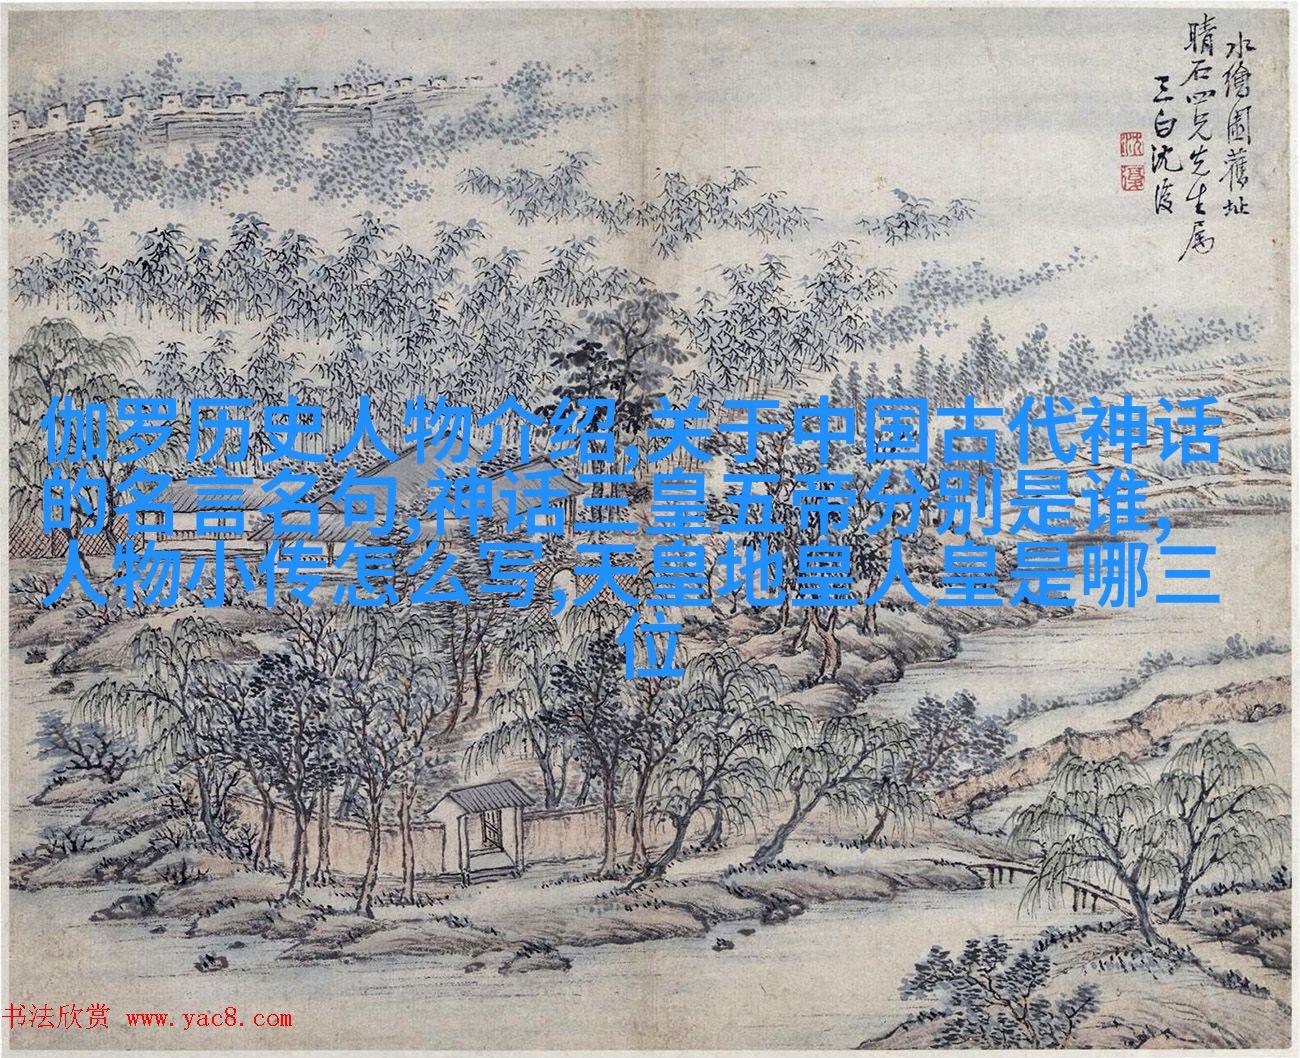 水繪園舊址
晴石四兄先生属
三白沈复
伽罗历史人物介绍,关于中国古代神话
的名言名句,神话三皇五帝分别是谁,
人物小传怎么写,天皇地皇人皇是哪三
位
书法欣赏 www.yac8.com